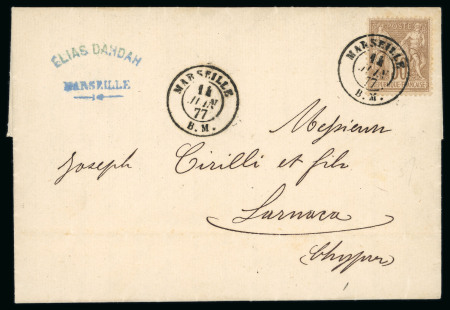 ELIAS DAHDAH
MARSEILLE
MARSEILLE
14
JUIN
77
B.M.
MARSEILLE
14
JUIN
77
B.M.
Messieurs
Joseph Cirilli et fils
Larnaca
Chypre